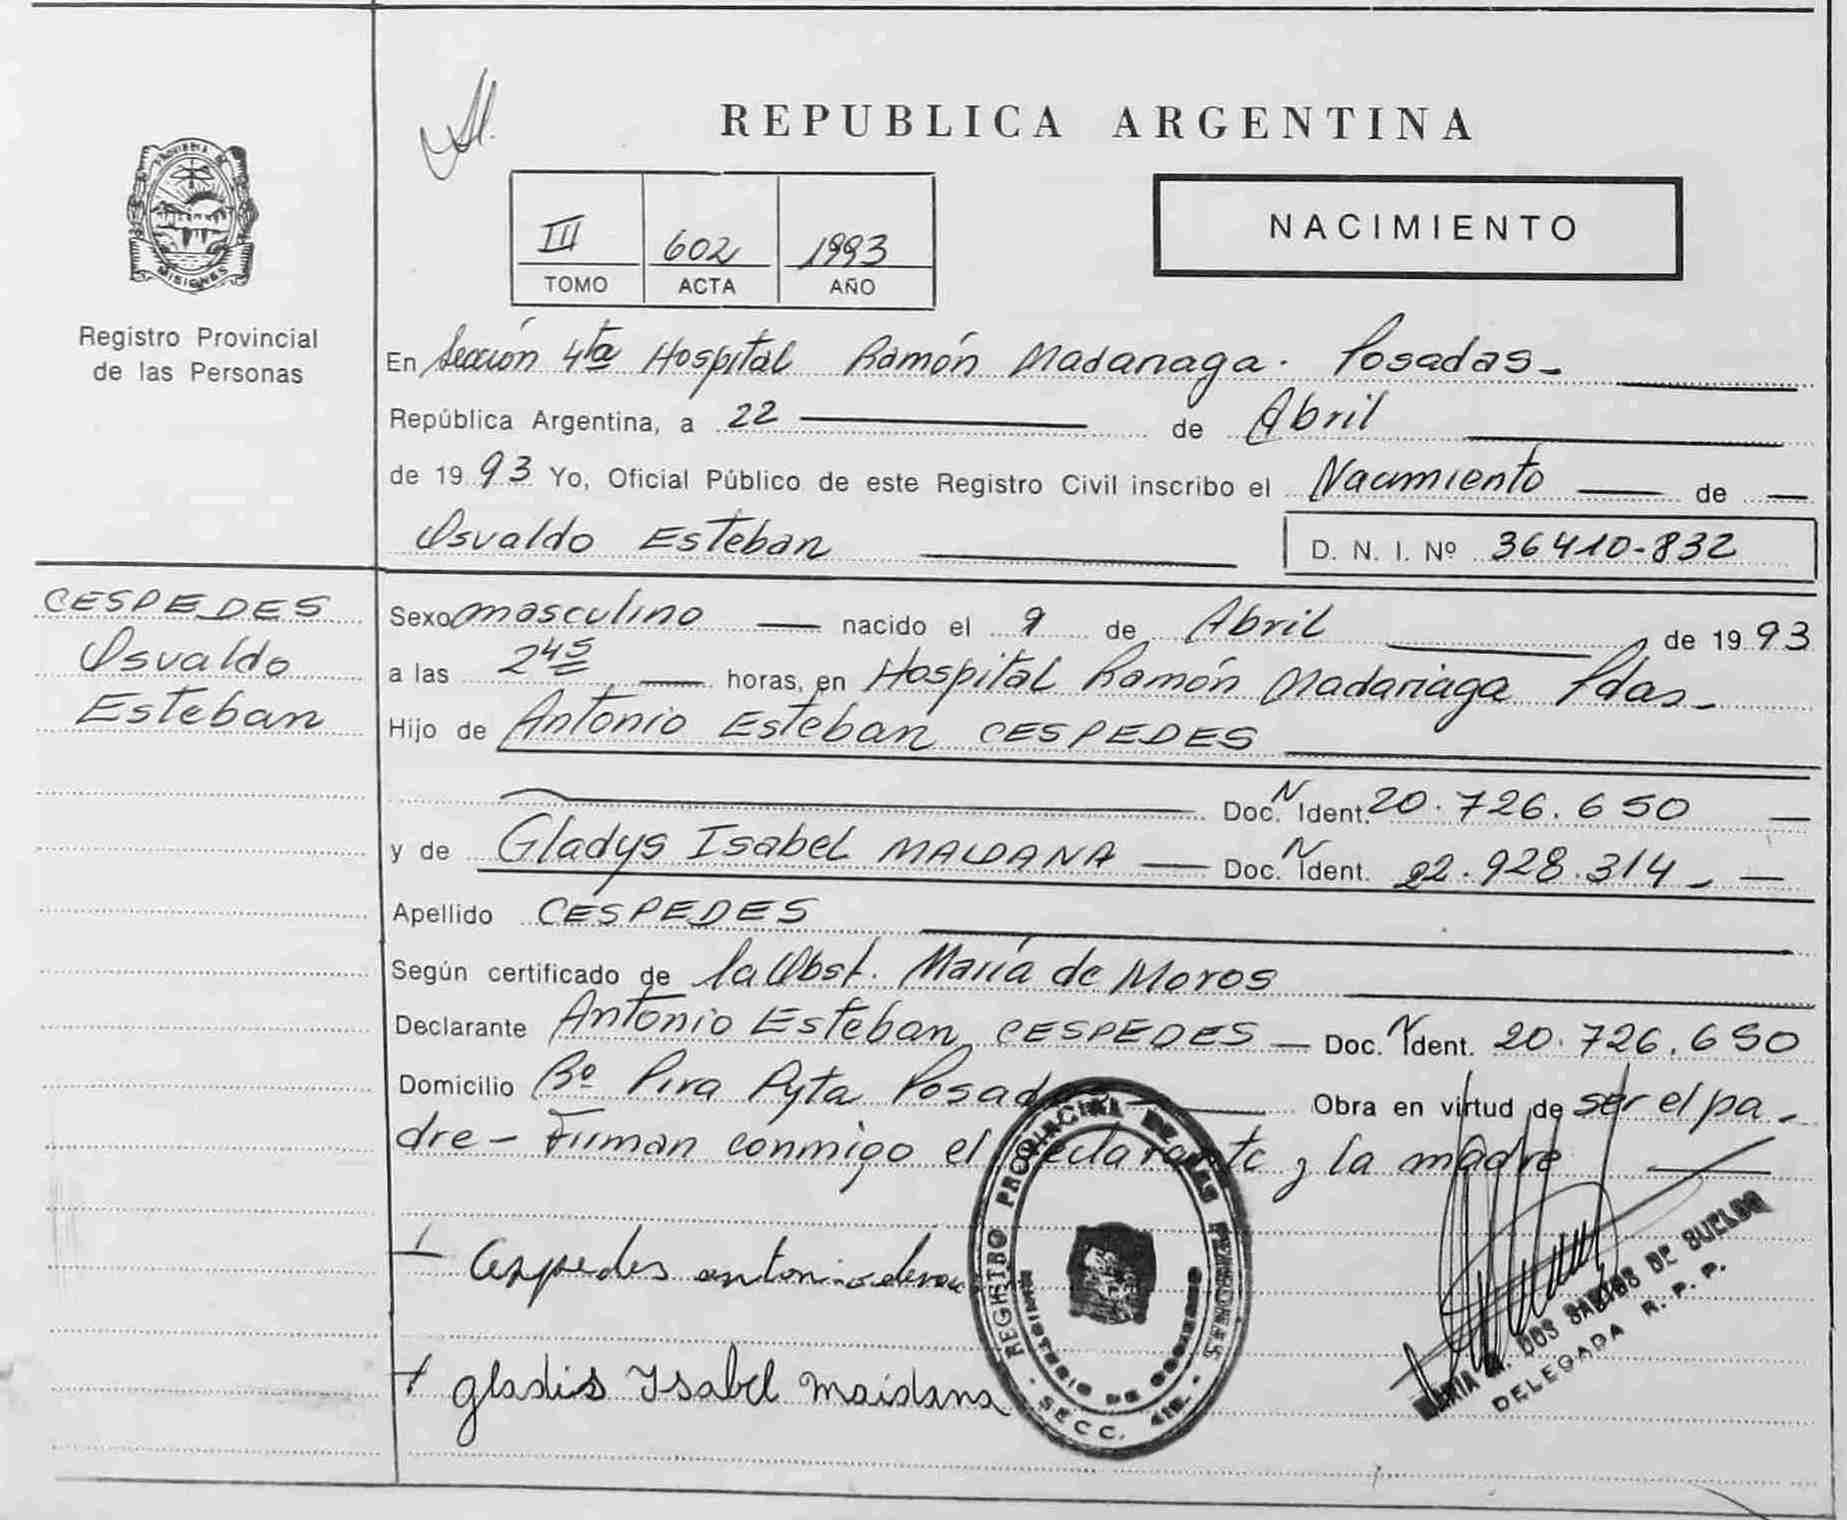 REPUBLICA ARGENTINA
PROVINCIA DE
MISIONES
Registro Provincial
de las Personas
III 602 1993
TOMO ACTA AÑO
NACIMIENTO
En Sección 4ta Hospital Ramón Madariaga. Posadas
República Argentina, a 22 de Abril
de 1993 Yo, Oficial Público de este Registro Civil inscribo el Nacimiento de
Osvaldo Esteban D. N. I. Nº 36410-832
CESPEDES
Osvaldo
Esteban
Sexo masculino nacido el 9 de Abril de 1993
a las 2 45 horas, en Hospital Ramón Madariaga Pdas
Hijo de Antonio Esteban CESPEDES
Doc. N Ident. 20.726.650
y de Gladys Isabel MAIDANA Doc. N Ident. 22.928.314
Apellido CESPEDES
Según certificado de la Obst. María de Moros
Declarante Antonio Esteban CESPEDES Doc. N Ident. 20.726.650
Domicilio Bº Pira Pyta Posadas Obra en virtud de ser el pa-
dre - Firman conmigo el declarante y la madre
Cespedes antonio
gladis Ysabel maidana
REGISTRO PROVINCIAL DE LAS PERSONAS
MINISTERIO DE GOBIERNO
SECC. 4ta.
MARIA DOS SANTOS DE SUELDO
DELEGADA R. P. P.